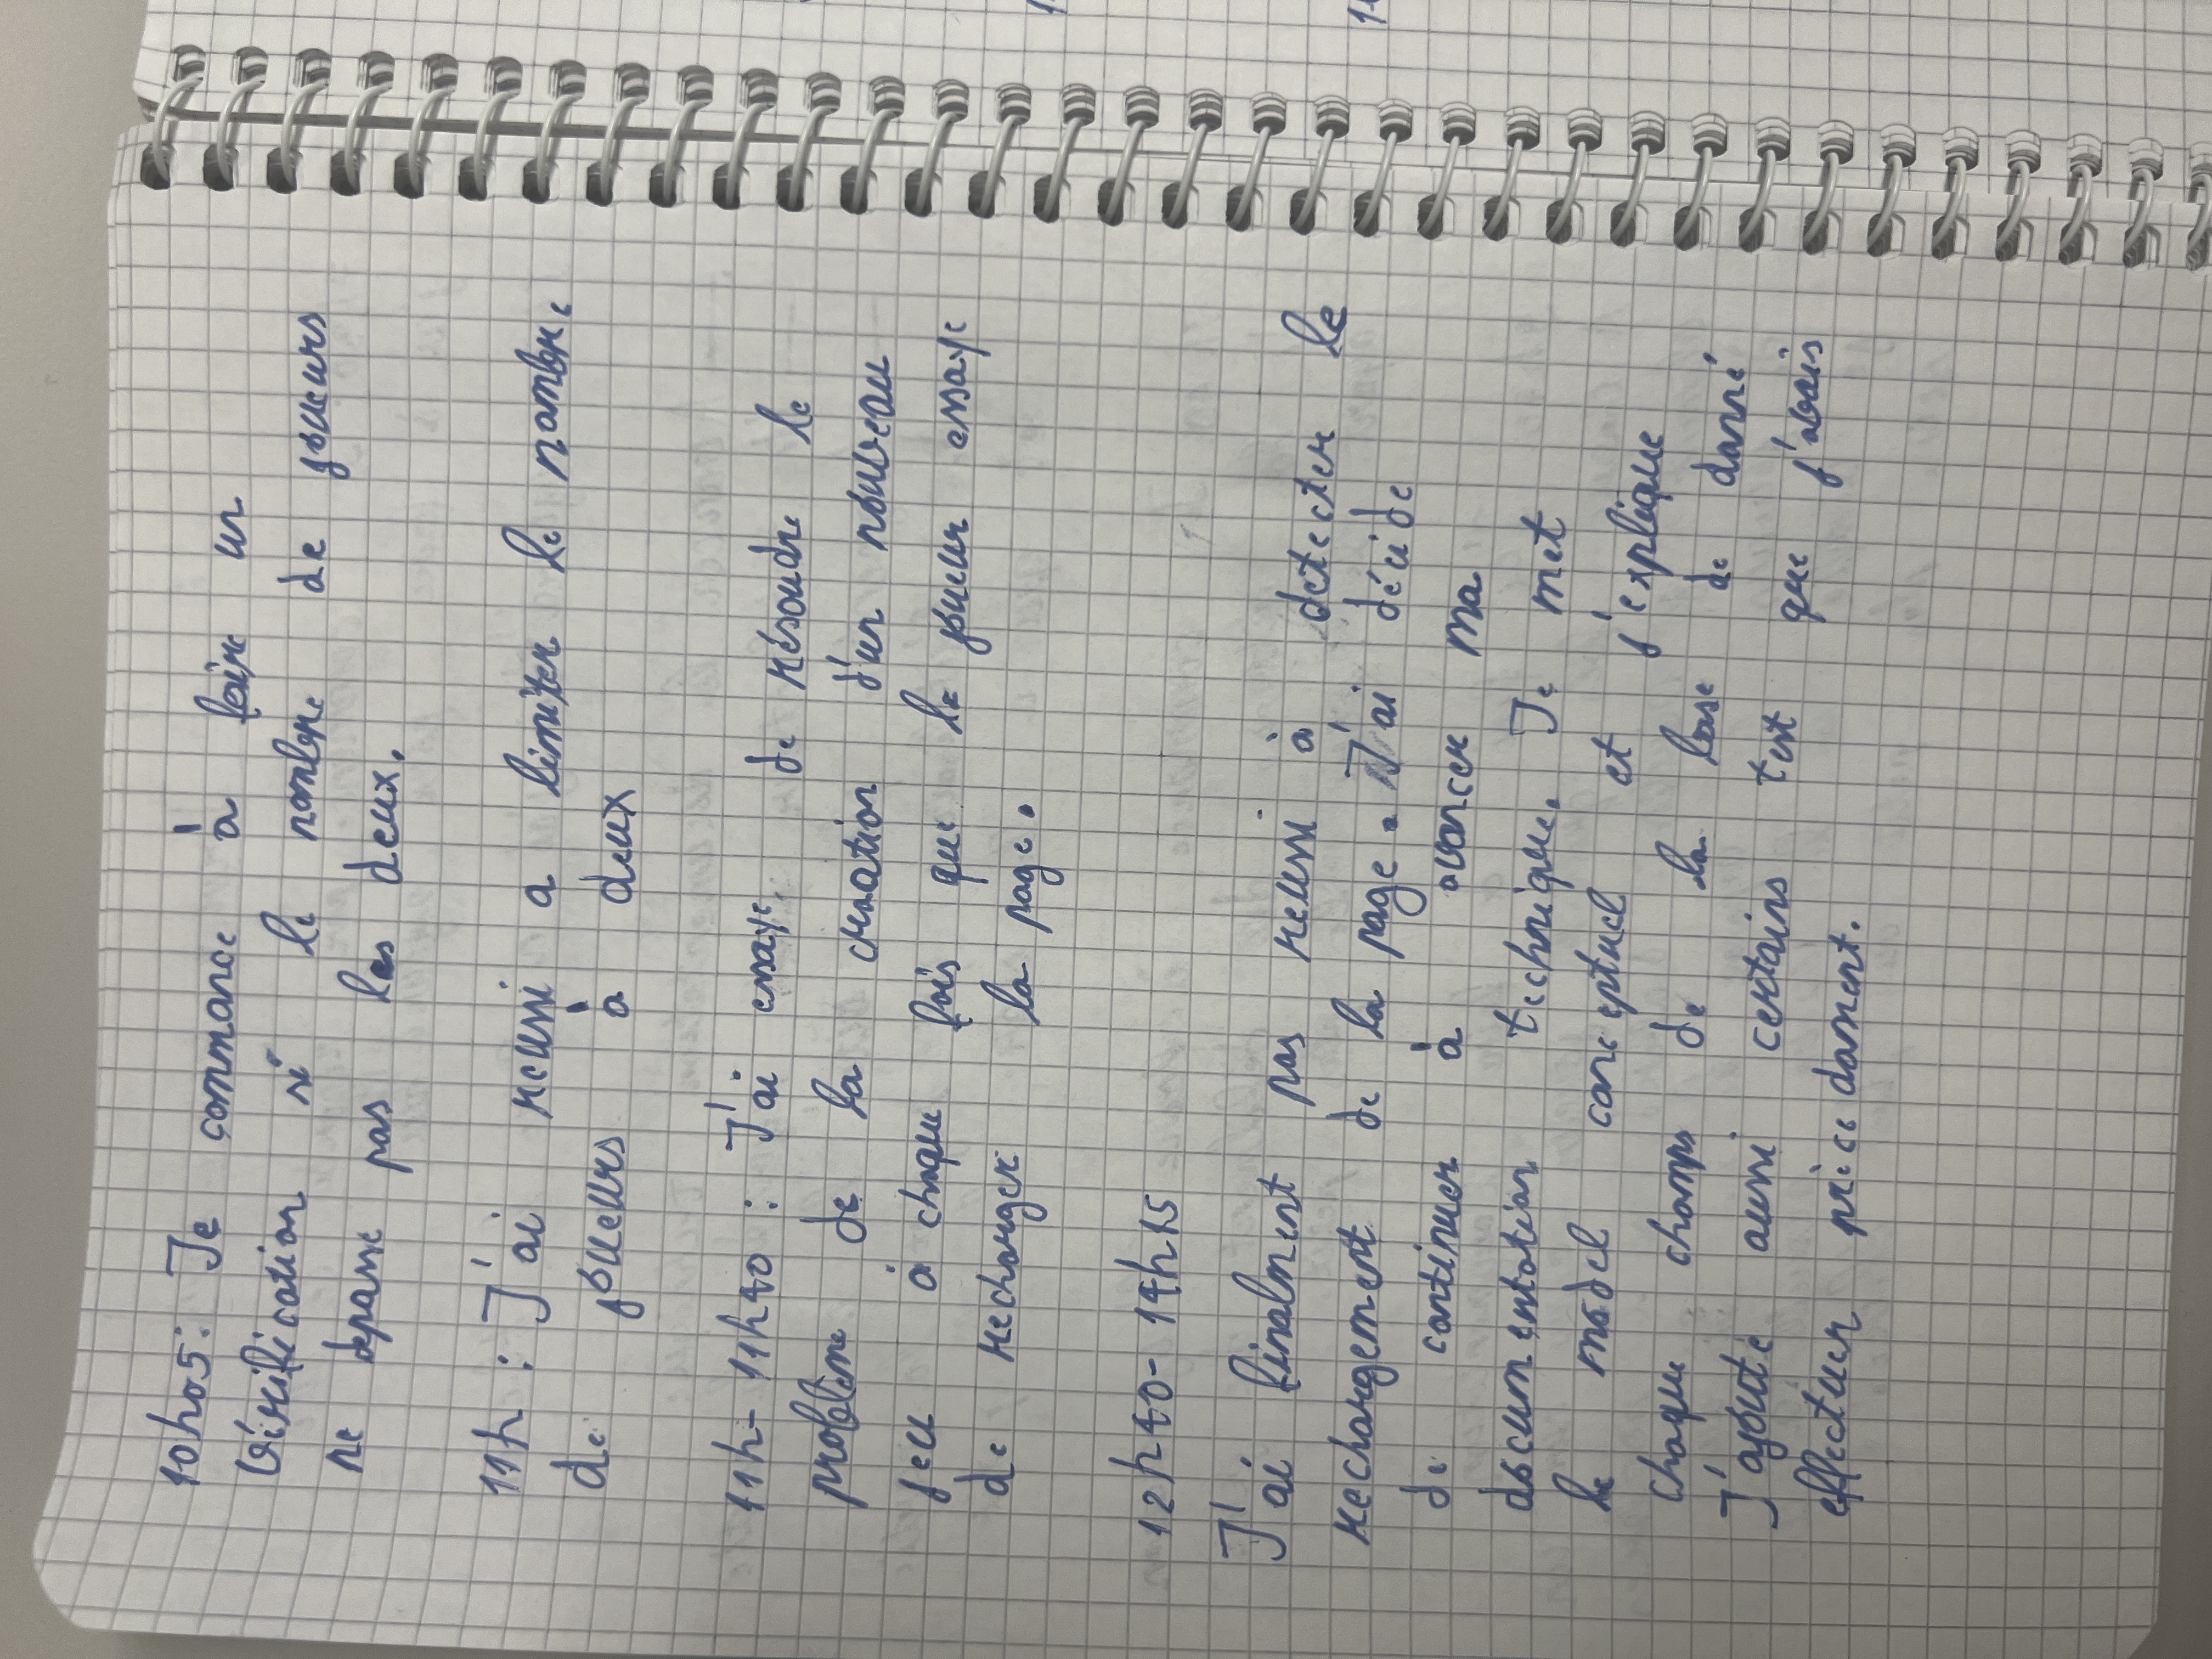 10h05: Je commance à faire un
vérification si le nombre de joueurs
ne depasse pas les deux.
11h : J'ai reussi a limiter le nombre
de joueurs à deux
11h- 11h40 : J'ai essaye de résoudre le
problème de la creation d'un nouveau
jeu à chaque fois que le joueur essaye
de recharger la page.
12h40- 14h15
J'ai finalment pas reussi à detecter le
rechargement de la page. J'ai décide
de continuer à avancer ma
documentation technique. Je met
le model conceptuel et j'explique
chaque champs de la base de donné
J'ajoute aussi certains test que j'avais
effectuer précedament.